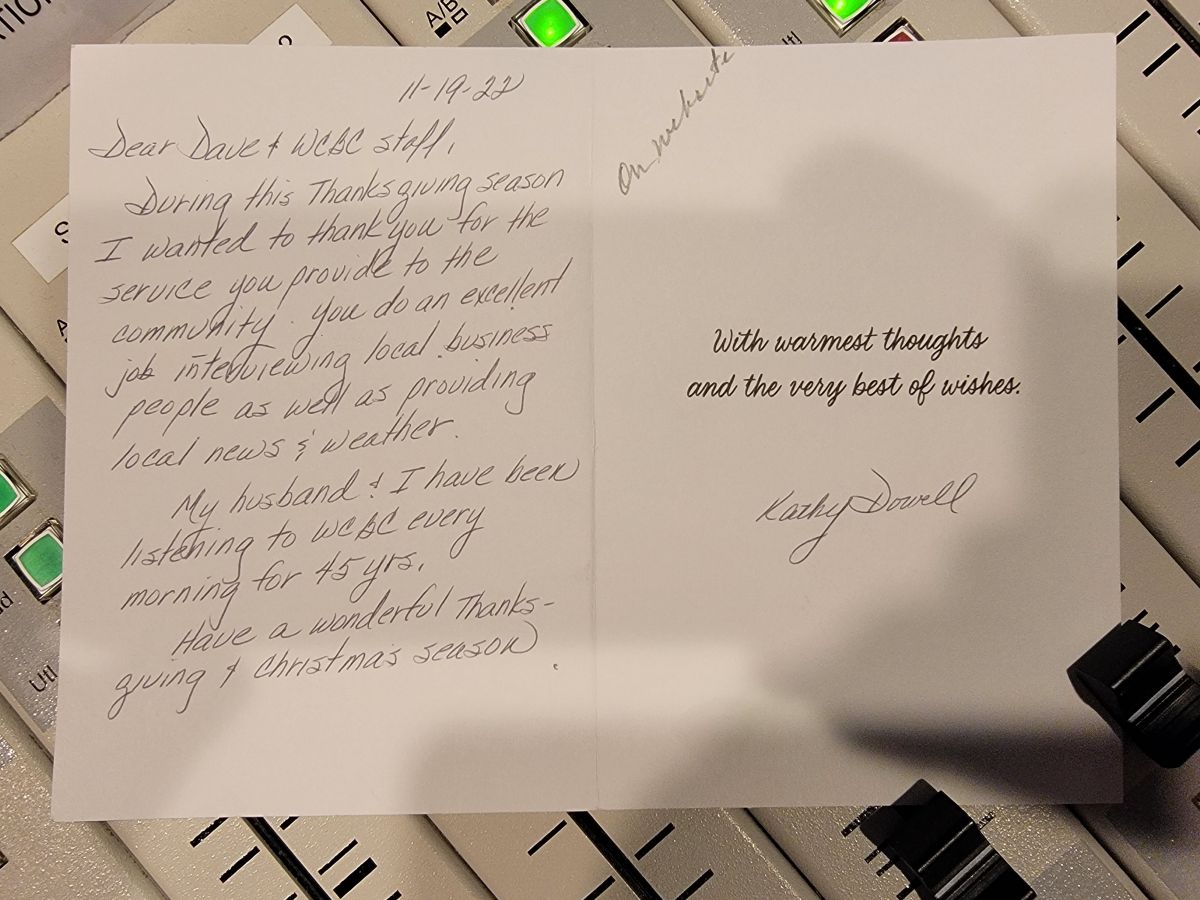 11-19-22
Dear Dave & WCBC staff,
During this Thanksgiving season
I wanted to thank you for the
service you provide to the
community. You do an excellent
job interviewing local business
people as well as providing
local news & weather.
My husband & I have been
listening to WCBC every
morning for 45 yrs.
Have a wonderful Thanks-
giving & Christmas season.
On website
With warmest thoughts
and the very best of wishes.
Kathy Dowell
A/B
Utl